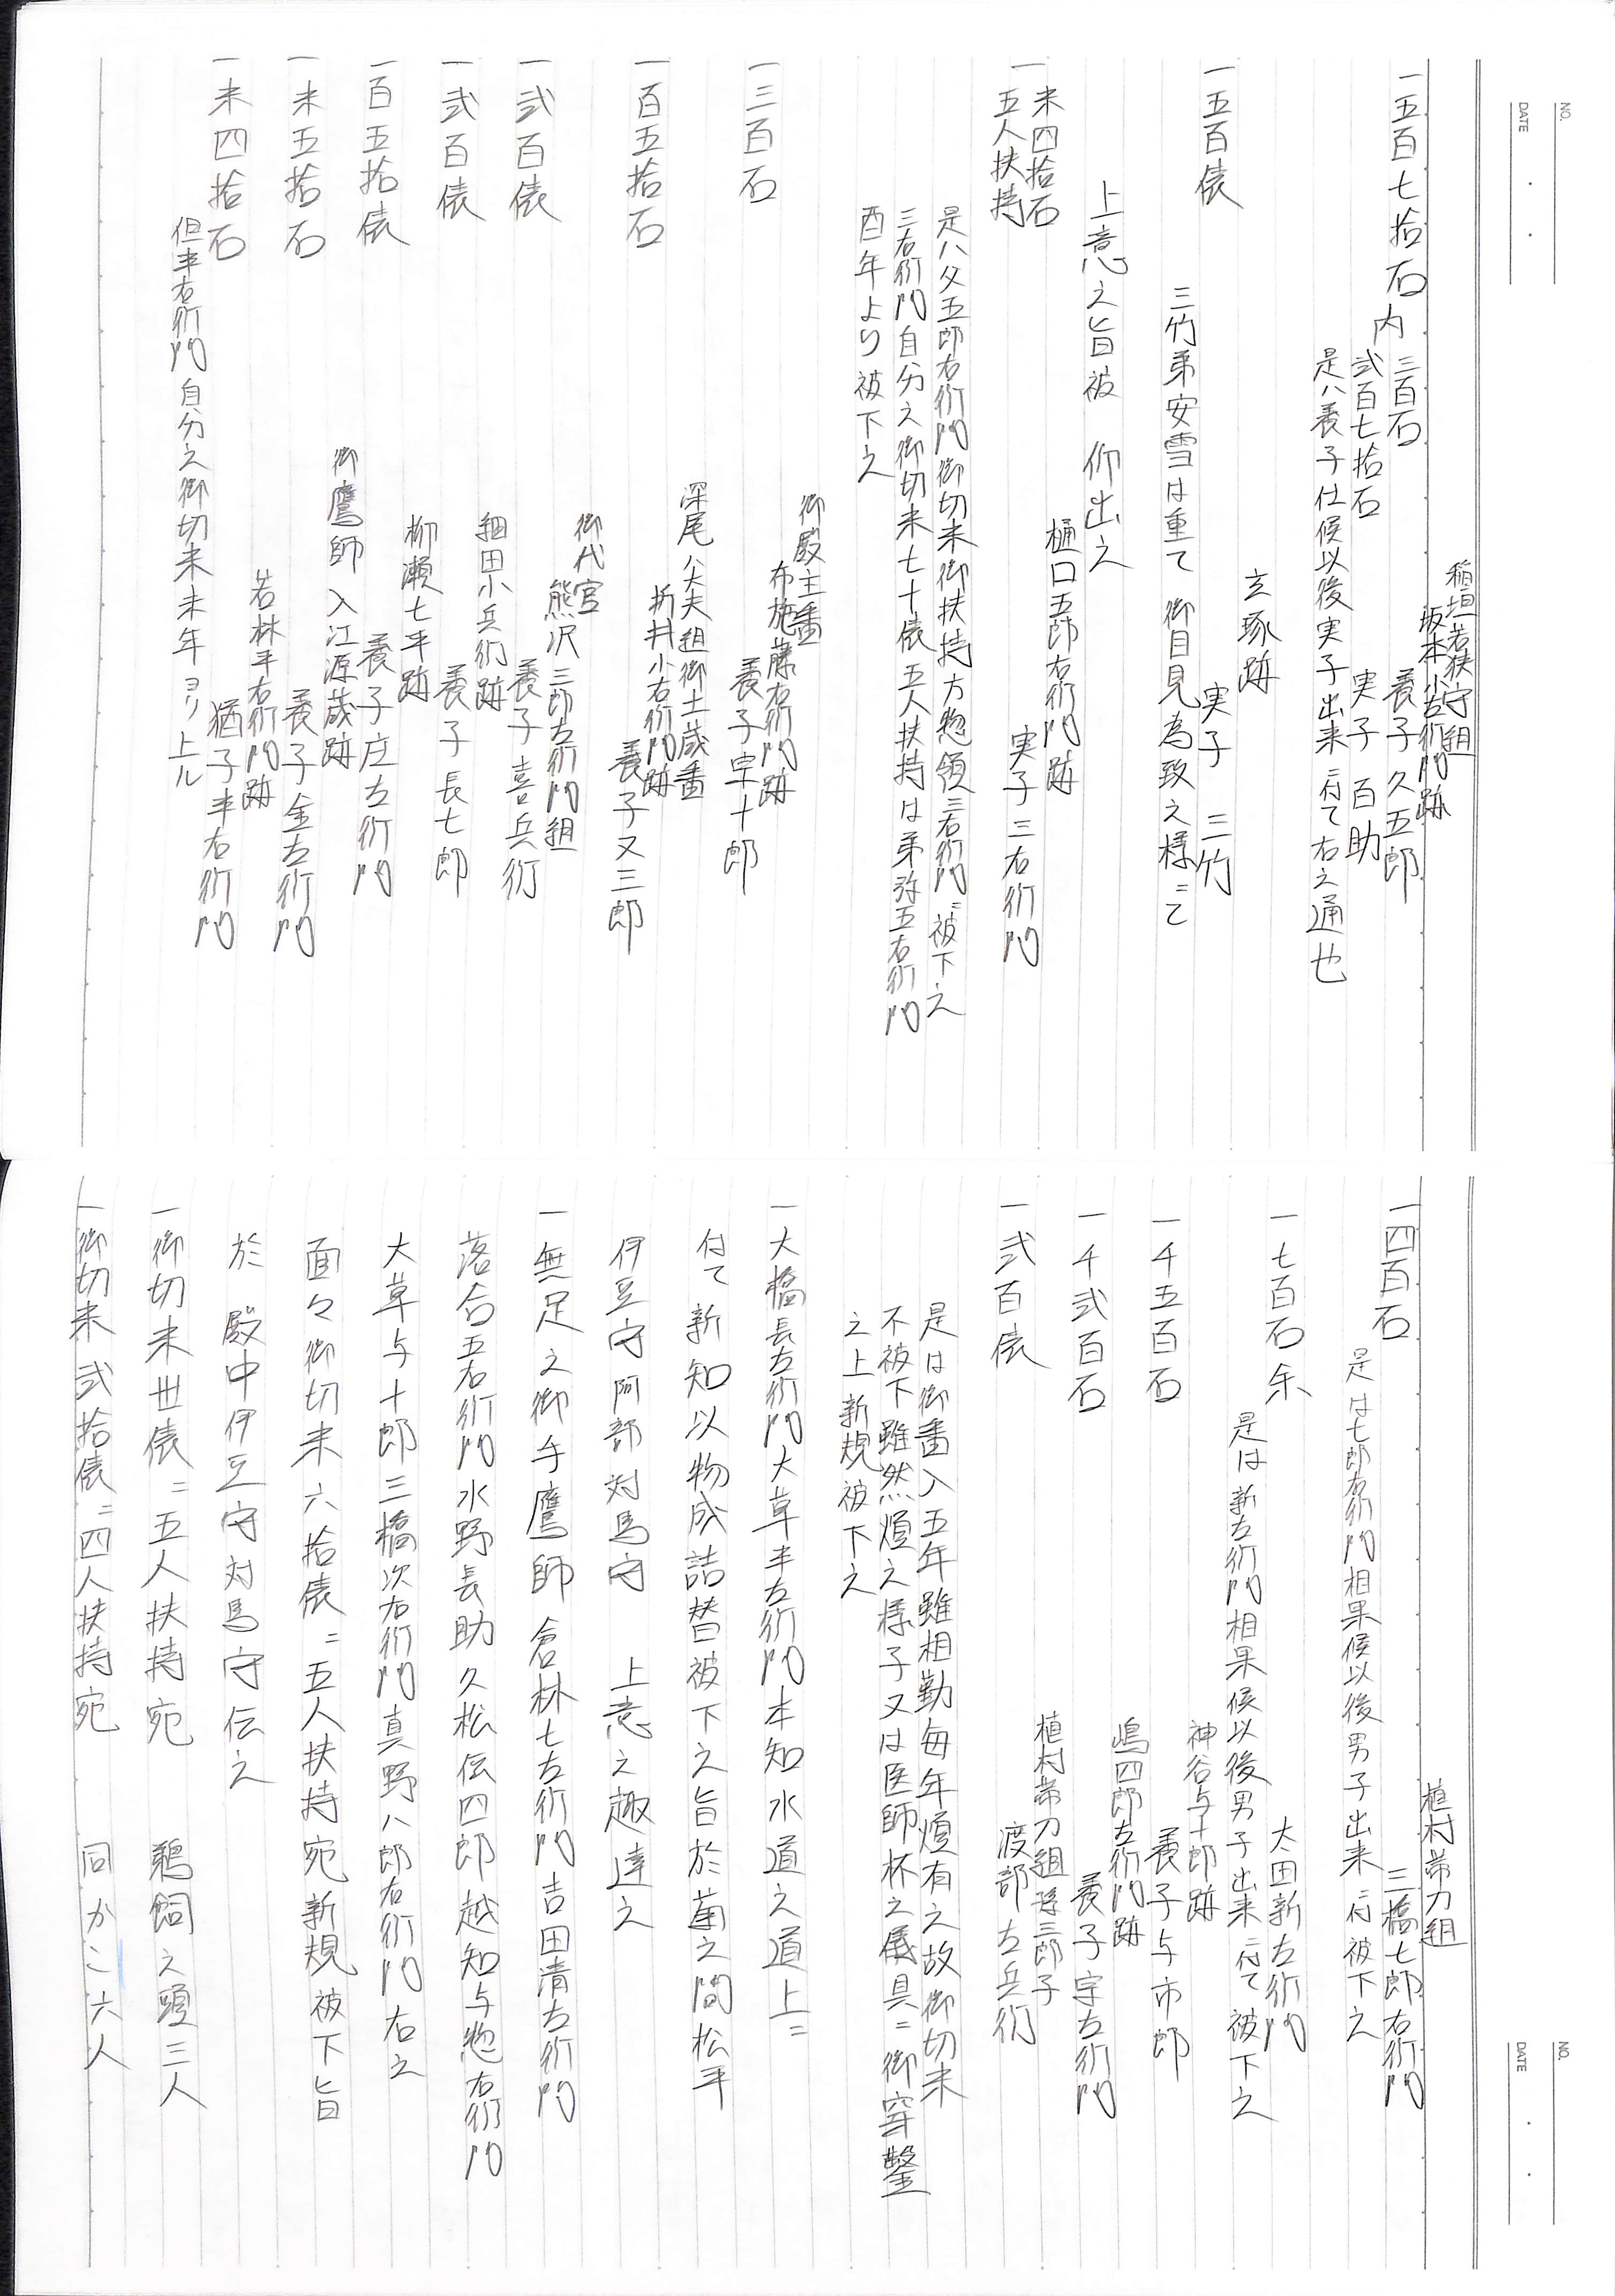 NO.
DATE
稲垣若狭守組
坂本小左衛門跡
一五百七拾石内 三百石 養子久五郎
弐百七拾石 実子百助
是ハ養子仕候以後実子出来ニ付て右之通也
玄琢跡
一五百俵 実子 三竹
三竹弟安雪は重て 御目見為致之様ニて
上意之旨被 仰出之
樋口五郎右衛門跡
一米四拾石
五人扶持 実子三右衛門
是ハ父五郎右衛門御切米御扶持方惣領三右衛門ニ被下之
三右衛門自分之御切米七十俵五人扶持は弟弥五右衛門
酉年より被下之
御殿主番
布施藤右衛門跡
一三百石 養子宇十郎
深尾八太夫組御土蔵番
折井小右衛門跡
一百五拾石 養子又三郎
御代官
熊沢三郎左衛門組
一弐百俵 養子喜兵衛
細田小兵衛跡
一弐百俵 養子長七郎
柳瀬七平跡
一百五拾俵 養子庄左衛門
御鷹師 入江源蔵跡
一米五拾石 養子金左衛門
若林平右衛門跡
一米四拾石 猶子半右衛門
但半右衛門自分之御切米未年ヨリ上ル
NO.
DATE
植村帯刀組
一四百石 三橋七郎右衛門
是は七郎右衛門相果候以後男子出来ニ付被下之
太田新左衛門
一七百石余
是は新左衛門相果候以後男子出来ニ付て被下之
神谷与十郎跡
一千五百石 養子与市郎
嶋四郎左衛門跡
一千弐百石 養子宇左衛門
植村帯刀組孫三郎子
一弐百俵 渡部左兵衛
是は御番入五年雖相勤毎年煩有之故御切米
不被下雖然煩之様子又は医師杯之儀具ニ御穿鑿
之上新規被下之
一大橋長左衛門大草半左衛門本知水道之道上ニ
付て新知以物成詰替被下之旨於菊之間松平
伊豆守阿部対馬守 上意之趣達之
一無足之御手鷹師倉林七左衛門吉田清左衛門
落合五右衛門水野長助久松伝四郎越知与惣右衛門
大草与十郎三橋次右衛門真野八郎右衛門右之
面々御切米六拾俵ニ五人扶持宛新規被下旨
於 殿中伊豆守対馬守伝之
一御切米丗俵ニ五人扶持宛 鵜飼之頭三人
一御切米弐拾俵ニ四人扶持宛 同かこ六人